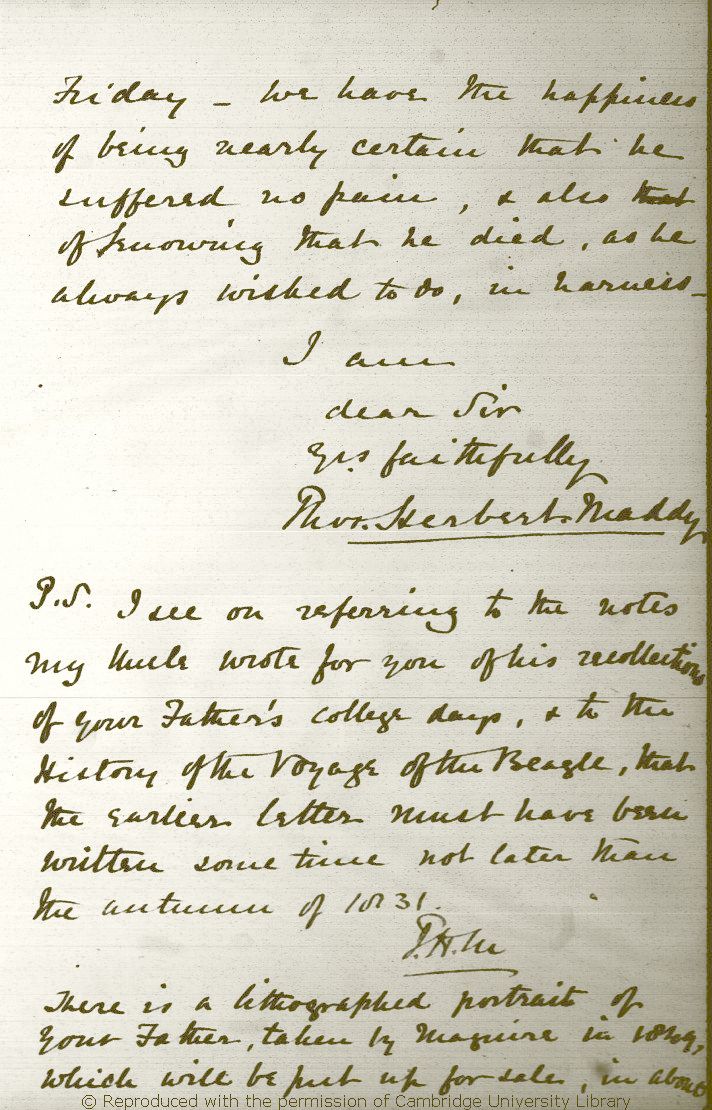 Friday - We have the happiness
of being nearly certain that he
suffered no pain, & also that
of knowing that he died, as he
always wished to do, in harness -
I am
dear Sir
Yrs faithfully
Thos. Herbert Maddy
P.S. I see on referring to the notes
my Uncle wrote for you of his recollections
of your Father's college days, & to the
History of the Voyage of the Beagle, that
the earlier letter must have been
written some time not later than
the autumn of 1831.
T.H.M
There is a lithographed portrait of
your Father, taken by Maguire in 1849,
which will be put up for sale, in about
© Reproduced with the permission of Cambridge University Library